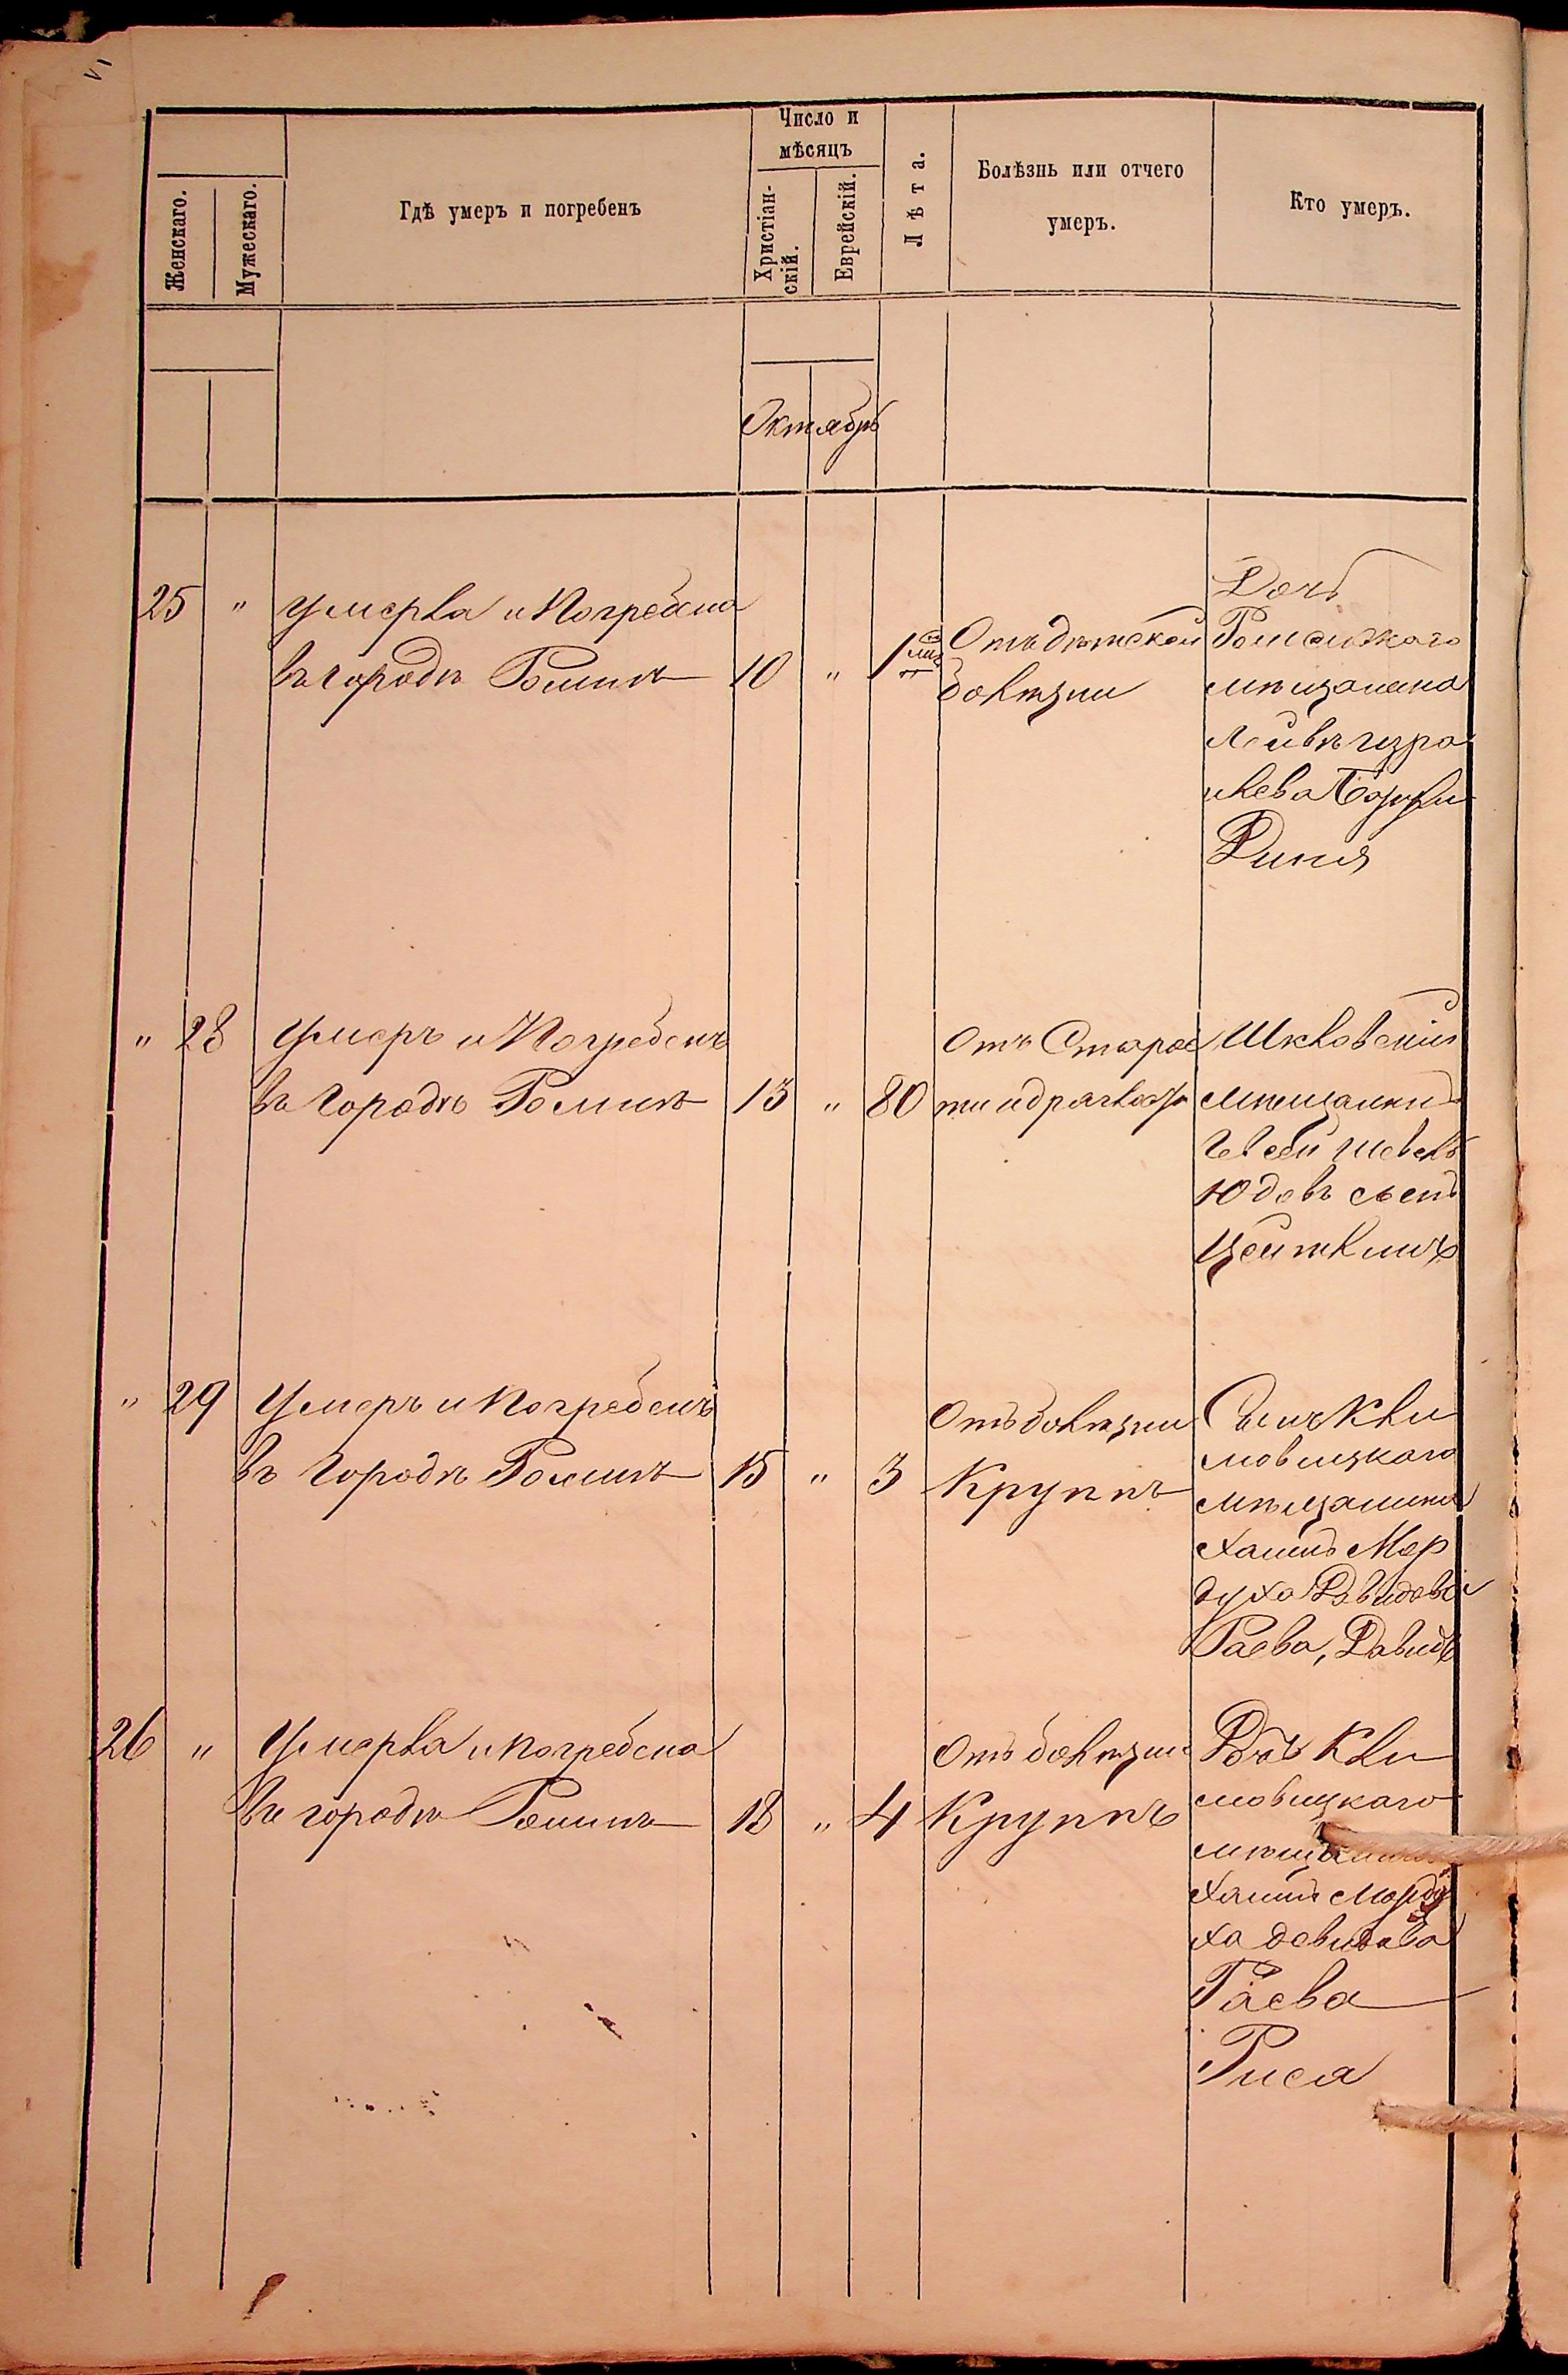 Женскаго.
Мужескаго.
Гдѣ умеръ и погребенъ
Число и
мѣсяцъ
Христіан-
скій.
Еврейскій.
Лѣта.
Болѣзнь или отчего
умеръ.
Кто умеръ.
Октябрь
25 " умерла и Погребена
въ городѣ Ромнѣ 10 " 1
Отъ дѣтской
болѣзни
Дочь
Роменскаго
мѣщанина
Лейвѣ Изра
илева
Диня
" 28 Умеръ и Погребенъ
въ Городѣ Ромнѣ 13 " 80
Отъ Старос
ти и дряхлости
Шкловскій
мѣщанинъ
Юдовъ сынъ
Цейтлинъ
" 29 Умеръ и Погребенъ
въ Городѣ Ромнѣ 15 " 3
Отъ болѣзни
Круппъ
Сынъ Кли
мовицкаго
мѣщанина
Хаимъ Мор
духа Давидова
Раева, Давидъ
26 " Умерла и погребена
въ городѣ Ромнѣ 18 " 4
Отъ болѣзни
Круппъ
Дочь Кли
мовицкаго
мѣщанина
Хаимъ Морду
ха Давидова
Раева
Риса